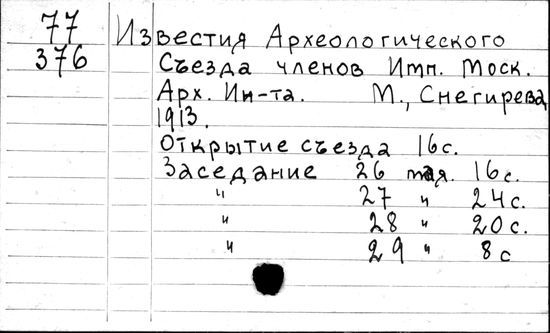 77 Известия Археологического
376 Съезда членов Имп. Моск.
Арх. Ин-та. М., Снегирева,
1913.
Открытие съезда 16с.
Заседание 26 мая. 16с.
" 27 " 24с.
" 28 " 20с.
" 29 " 8с